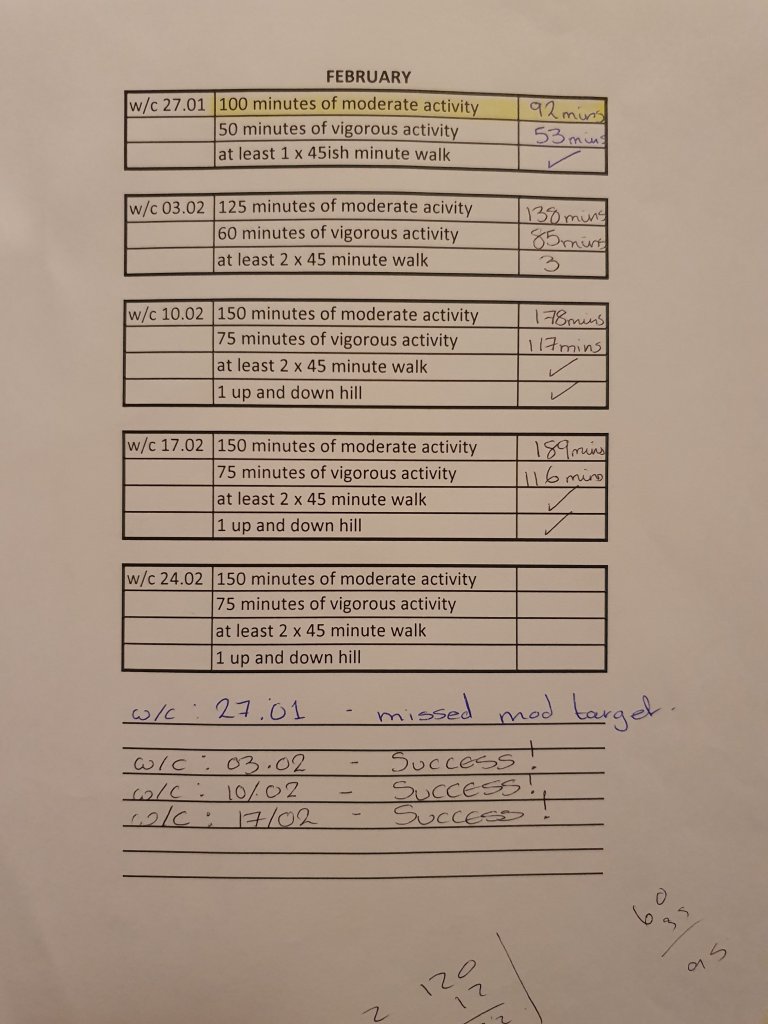 FEBRUARY
w/c 27.01 100 minutes of moderate activity 92 mins
50 minutes of vigorous activity 53 mins
at least 1 x 45ish minute walk ✓
w/c 03.02 125 minutes of moderate acivity 138 mins
60 minutes of vigorous activity 85 mins
at least 2 x 45 minute walk 3
w/c 10.02 150 minutes of moderate activity 178 mins
75 minutes of vigorous activity 117 mins
at least 2 x 45 minute walk ✓
1 up and down hill ✓
w/c 17.02 150 minutes of moderate activity 189 mins
75 minutes of vigorous activity 116 mins
at least 2 x 45 minute walk ✓
1 up and down hill ✓
w/c 24.02 150 minutes of moderate activity
75 minutes of vigorous activity
at least 2 x 45 minute walk
1 up and down hill
w/c : 27.01 - missed mod target.
w/c : 03.02 - SUCCESS!
w/c : 10/02 - SUCCESS!
w/c : 17/02 - SUCCESS!
60
35
95
120
12
2